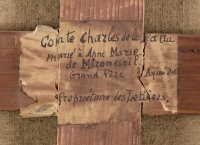 Comte Charles de la
marié à Anne Marie
de Miromesnil
Grand Père
Propriétaire des